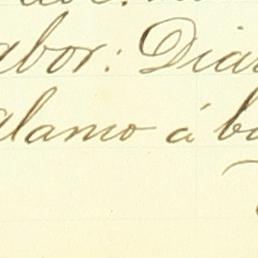 abor: Diar
alamo á ba